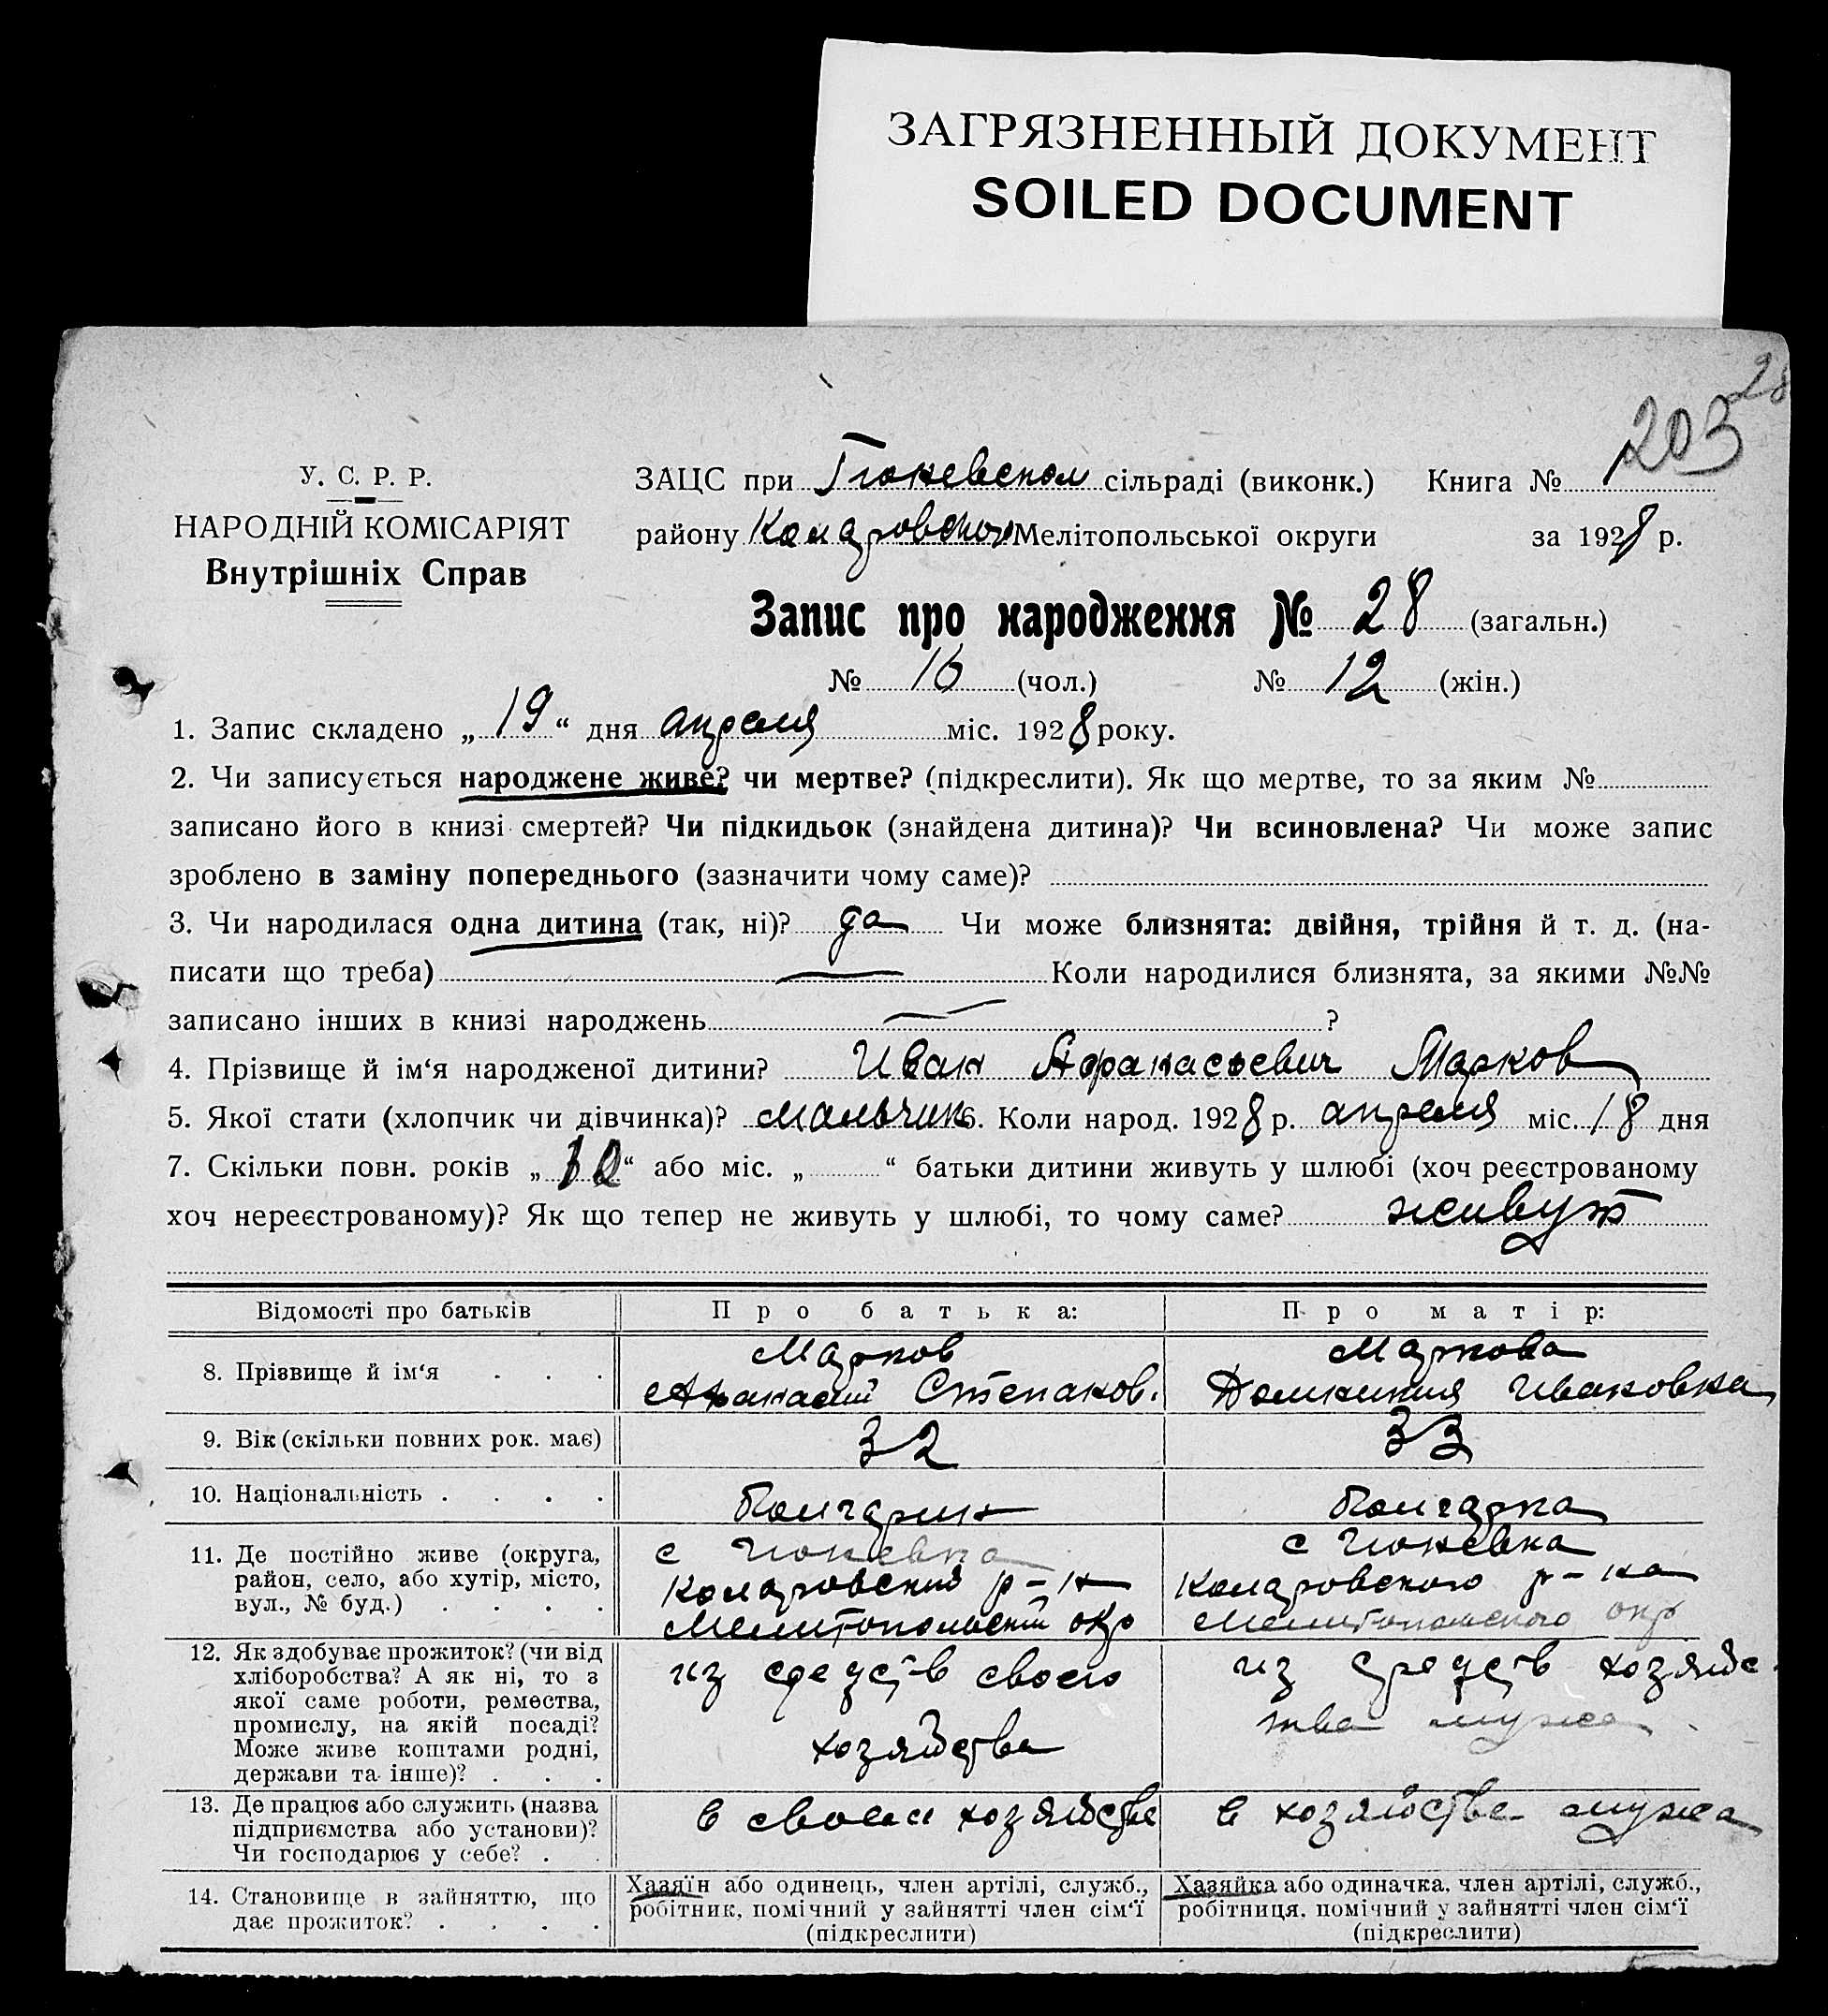 ЗАГРЯЗНЕННЫЙ ДОКУМЕНТ
SOILED DOCUMENT
28
203
У. С. Р. Р.
НАРОДНІЙ КОМІСАРІЯТ
Внутрішніх Справ
ЗАЦС при Гюневском сільраді (виконк.) Книга № 1
району Коларовского Мелітопольської округи за 1928 р.
Запис про народження № 28 (загальн.)
№ 16 (чол.) № 12 (жін.)
1. Запис складено „ 19 “ дня апреля міс. 1928 року.
2. Чи записується народжене живе? чи мертве? (підкреслити). Як що мертве, то за яким №
записано його в книзі смертей? Чи підкидьок (знайдена дитина)? Чи всиновлена? Чи може запис
зроблено в заміну попереднього (зазначити чому саме)?
3. Чи народилася одна дитина (так, ні)? да Чи може близнята: двійня, трійня й т. д. (на-
писати що треба) — Коли народилися близнята, за якими №№
записано інших в книзі народжень — ?
4. Прізвище й ім‘я народженої дитини? Иван Афанасьевич Марков
5. Якої стати (хлопчик чи дівчинка)? мальчик 6. Коли народ. 1928 р. апреля міс. 18 дня
7. Скільки повн. років „ 10 “ або міс. „ “ батьки дитини живуть у шлюбі (хоч реєстрованому
хоч нереєстрованому)? Як що тепер не живуть у шлюбі, то чому саме? живут
Відомості про батьків
Про батька:
Про матір:
8. Прізвище й ім‘я . . .
Марков
Афанасий Степанов.
Маркова
Домникия Ивановна
9. Вік (скільки повних рок. має)
32
33
10. Національність . . . .
Болгарин
Болгарка
11. Де постійно живе (округа,
район, село, або хутір, місто,
вул., № буд.) . . . .
с Гюневка
Коларовский р-н
Мелитопольский окр
с Гюневка
Коларовского р-на
Мелитопольского окр
12. Як здобуває прожиток? (чи від
хліборобства? А як ні, то з
якої саме роботи, ремества,
промислу, на якій посаді?
Може живе коштами родні,
держави та інше)? . . .
из средств своего
хозяйства
из средств хозяйс-
тва мужа
13. Де працює або служить (назва
підприємства або установи)?
Чи господарює у себе? . .
в своем хозяйстве
в хозяйстве мужа
14. Становище в зайняттю, що
дає прожиток? . . . .
Хазяїн або одинець, член артілі, служб.,
робітник, помічний у зайнятті член сім‘ї
(підкреслити)
Хазяйка або одиначка, член артілі, служб.,
робітниця, помічний у зайнятті член сім‘ї
(підкреслити)